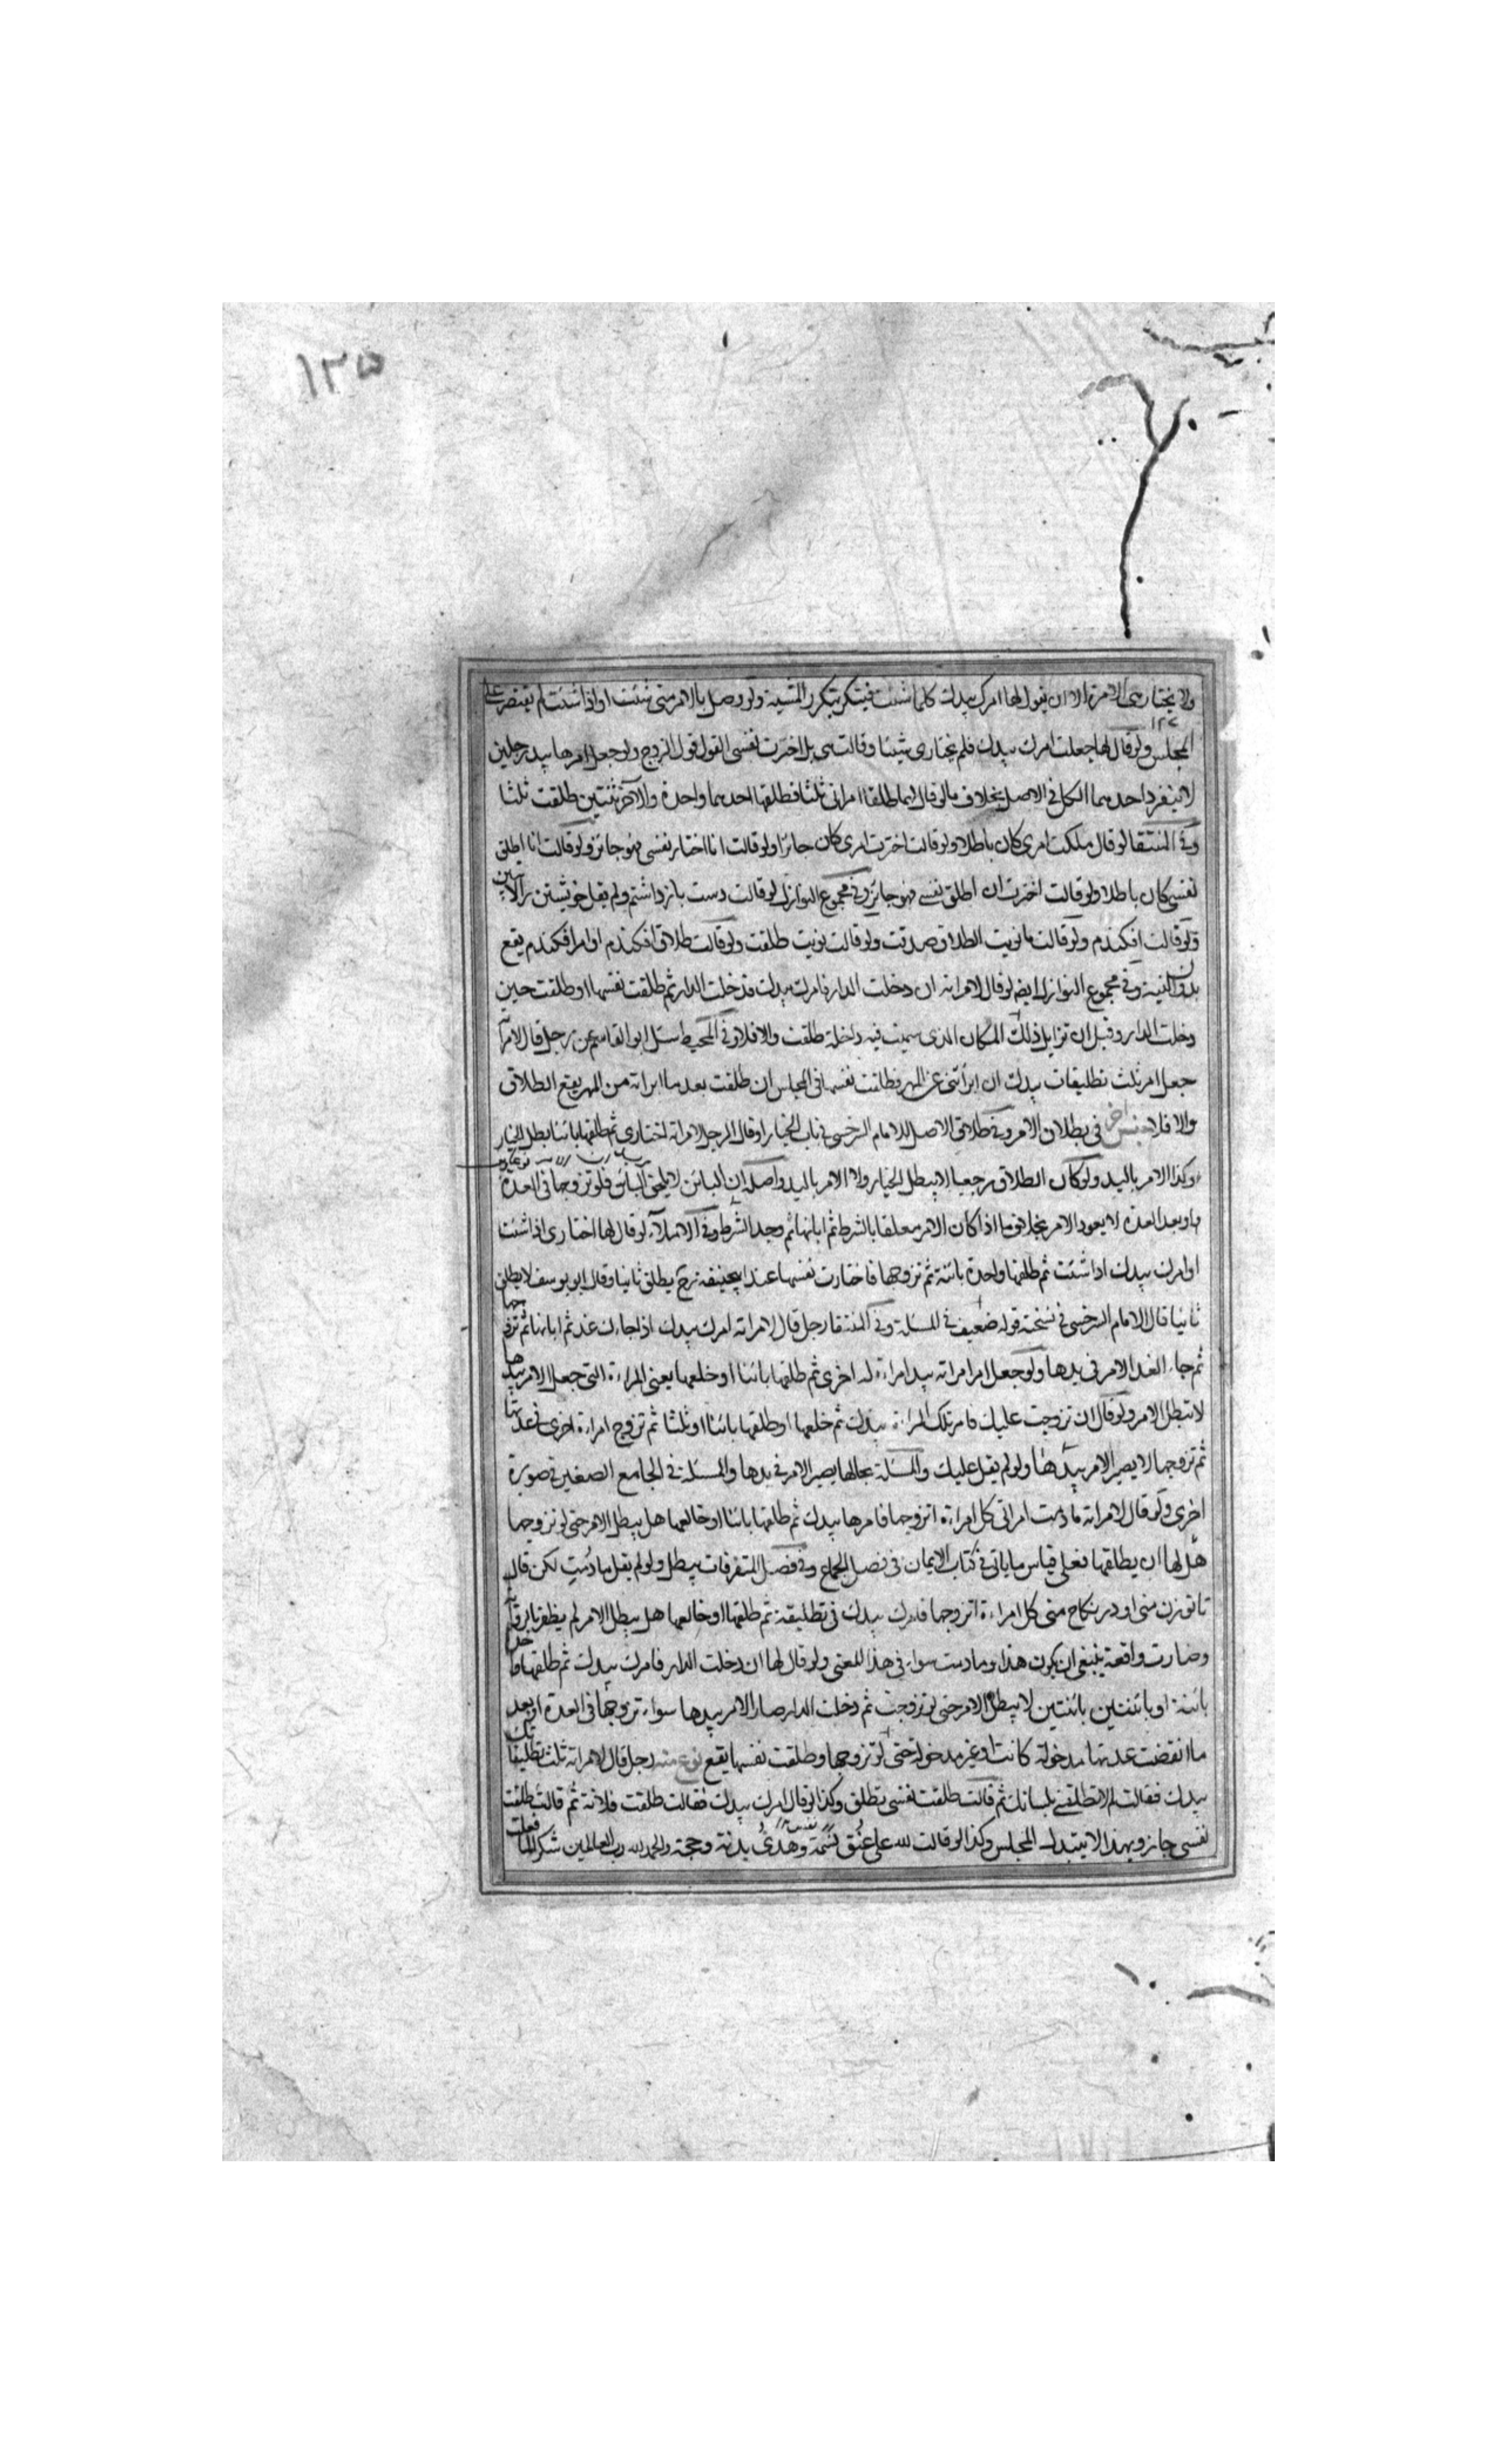 ١٣٥
ولا يختار هي الا مرة الا ان يقول لها امرك بيدك كلما شئت فيتكرر بتكرر المشية ولو وصل بالامر متى شئت او اذا شئت لم يقتصر على
١٢٧
المجلس ولو قال لها جعلت امرك بيدك فلم تختارى شيئا وقالت هى بل اخترت نفسى القول قول الزوج ولو جعل امرها بيد رجلين
لا ينفرد احدهما الكل فى الاصل بخلاف ما لو قال لهما طلقا امراتى ثلثا فطلقها احدهما واحدة والآخر ثنتين طلقت ثلثا
وفى المنتقا لو قال ملكت امرى كان باطلا ولو قالت اخترت امرى كان جائزا ولو قالت انا اختار نفسى فهو جائز ولو قالت انا اطلق
نفسى كان باطلا ولو قالت اخترت ان اطلق نفسى فهو جائز وفى مجموع النوازل لو قالت دست بازداشتم ولم يقل خويشتن را لا تبين
ولو قالت افكندم ولو قالت ما نويت الطلاق صدقت ولو قالت نويت طلقت ولو قالت طلاق افكندم او امر افكندم يقع
بدون النية وفى مجموع النوازل ايضا لو قال لامراته ان دخلت الدار فامرك بيدك فدخلت الدار ثم طلقت نفسها او طلقت حين
دخلت الدار وقبل ان تزايل ذلك المكان الذى سميت فيه داخلة طلقت والا فلا وفى المحيط سئل ابو القاسم عن رجل قال لامراته
جعل امر ثلث تطليقات بيدك ان ابرأتنى عن المهر فطلقت نفسها فى المجلس ان طلقت بعد ما ابراته من المهر يقع الطلاق
والا فلا جنس آخر فى بطلان الامر وفى طلاق الاصل للامام السرخسى فى باب الخيار او قال الرجل لامراته اختارى ثم طلقها بائنا بطل الخيار
وكذا الامر باليد ولو كان الطلاق رجعيا لا يبطل الخيار ولا الامر باليد واصله ان البائن لا يلحق البائن فلو تزوجها فى العدة
او بعد العدة لا يعود الامر بخلاف ما اذا كان الامر معلقا بالشرط ثم ابانها ثم وجد الشرط وفى الاملاء لو قال لها اختارى اذا شئت
او امرك بيدك اذا شئت ثم طلقها واحدة بائنة ثم تزوجها فاختارت نفسها عند ابيحنيفة رح يطلق ثانيا وقال ابو يوسف لا يطلق
ثانيا قال الامام السرخسى فى نسخته قوله ضعيف فى المسئلة وفى المنتقا رجل قال لامراته امرك بيدك اذا جاء غد ثم ابانها ثم تزوجها
ثم جاء الغد الامر فى يدها ولو جعل امر امراته بيد امراءة له اخرى ثم طلقها بائنا او خلعها يعنى المراءة التى جعل الامر بيدها
لا تبطل الامر ولو قال ان تزوجت عليك فامر تلك المراءة بيدك ثم خلعها او طلقها بائنا او ثلثا ثم تزوج امراءة اخرى فى عدتها
ثم تزوجها لا يصير الامر بيدها ولو لم يقل عليك والمسئلة بحالها يصير الامر فى يدها والمسئلة فى الجامع الصغير فى صورة
اخرى ولو قال لامراته ما دمت امراتى كل امراءة اتزوجها فامرها بيدك ثم طلقها بائنا او خالعها هل يبطل الامر حتى لو تزوجها
هل لها ان يطلقها فعلى قياس ما ياتى فى كتاب الايمان فى فصل الجماع وفى فصل المتفرقات يبطل ولو لم يقل ما دمت لكن قال
تا تو زن منى او در نكاح منى كل امراءة اتزوجها فامرك بيدك فى تطليقة ثم طلقها او خالعها هل يبطل الامر لم يظفر
وصارت واقعة ينبغى ان يكون هذا وما دمت سواء فى هذا المعنى ولو قال لها ان دخلت الدار فامرك بيدك ثم طلقها واحدة
بائنة او بائنتين لا يبطل الامر حتى لو تزوجت ثم دخلت الدار صار الامر بيدها سواء تزوجها فى العدة او بعد
ما انقضت عدتها مدخولة كانت او غير مدخولة حتى لو تزوجها وطلقت نفسها يقع نوع منه رجل قال لامراته ثلث تطليقاتك
بيدك فقالت لم لا تطلقنى بلسانك ثم قالت طلقت نفسى تطلق وكذا لو قال امرك بيدك فقالت طلقت فلانة ثم قالت طلقت
نفسى جاز وبهذا لا يتبدل المجلس وكذا لو قالت لله على عتق نسمة وهدى بدنة وحجة والحمد لله رب العالمين شكرا لما فعلت